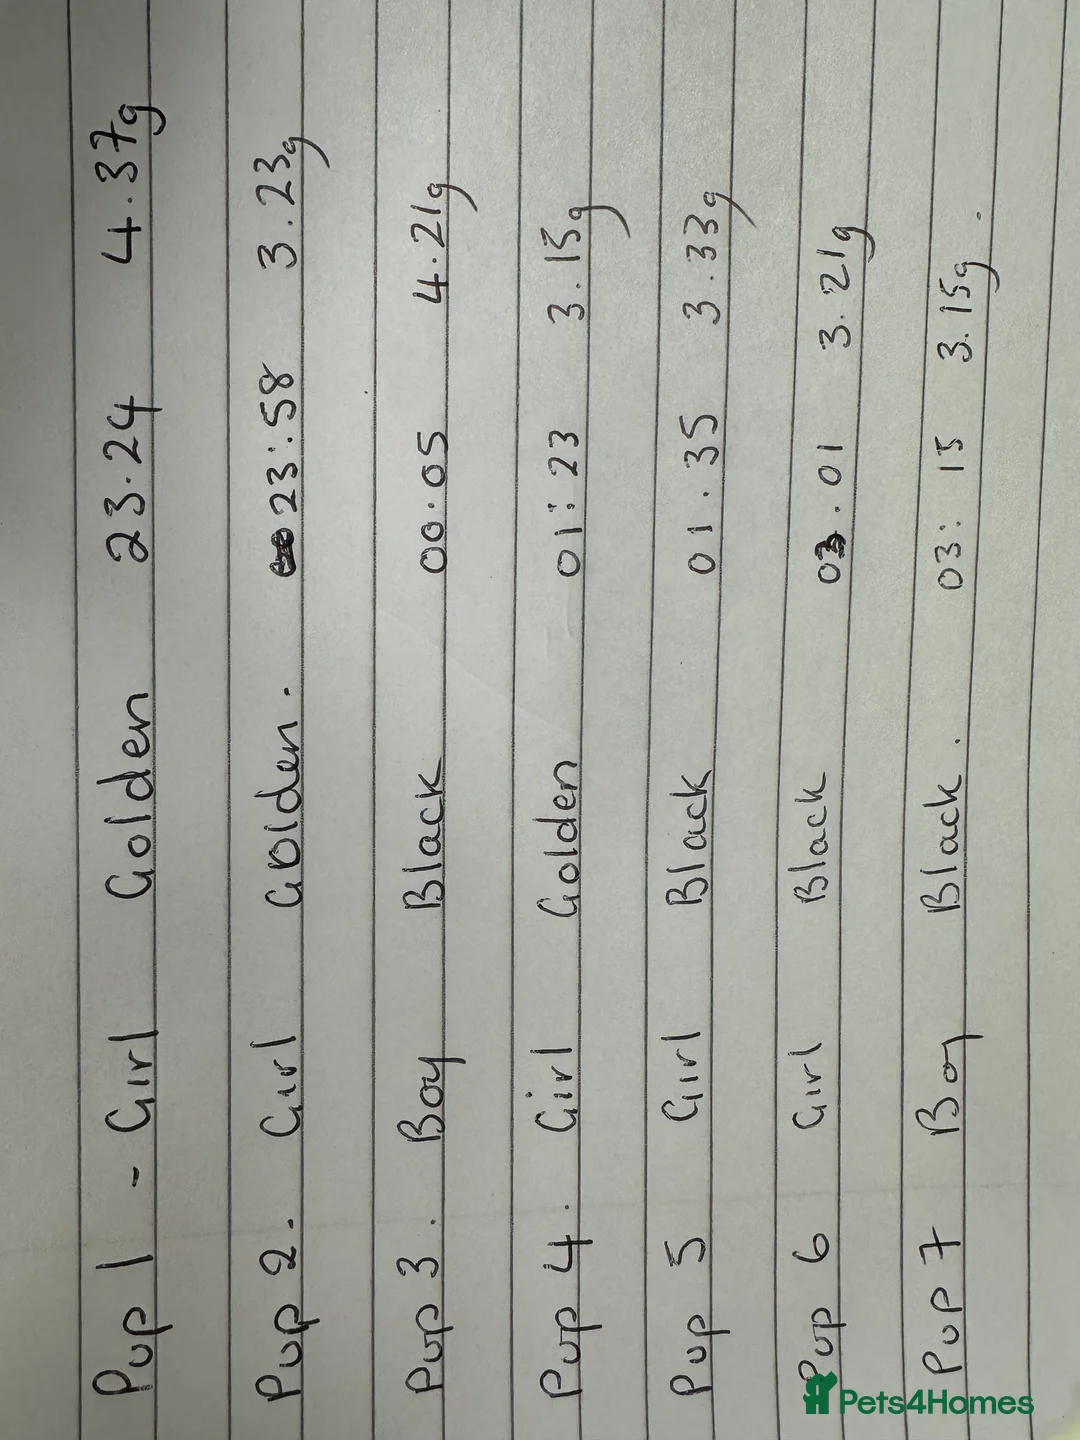 Pup 1 - Girl Golden 23.24 4.37g
Pup 2. Girl Golden. 23:58 3.23g
Pup 3. Boy Black 00.05 4.21g
Pup 4. Girl Golden 01:23 3.15g
Pup 5 Girl Black 01.35 3.33g
Pup 6 Girl Black 03.01 3.21g
Pup 7 Boy Black. 03:15 3.15g.
Pets4Homes